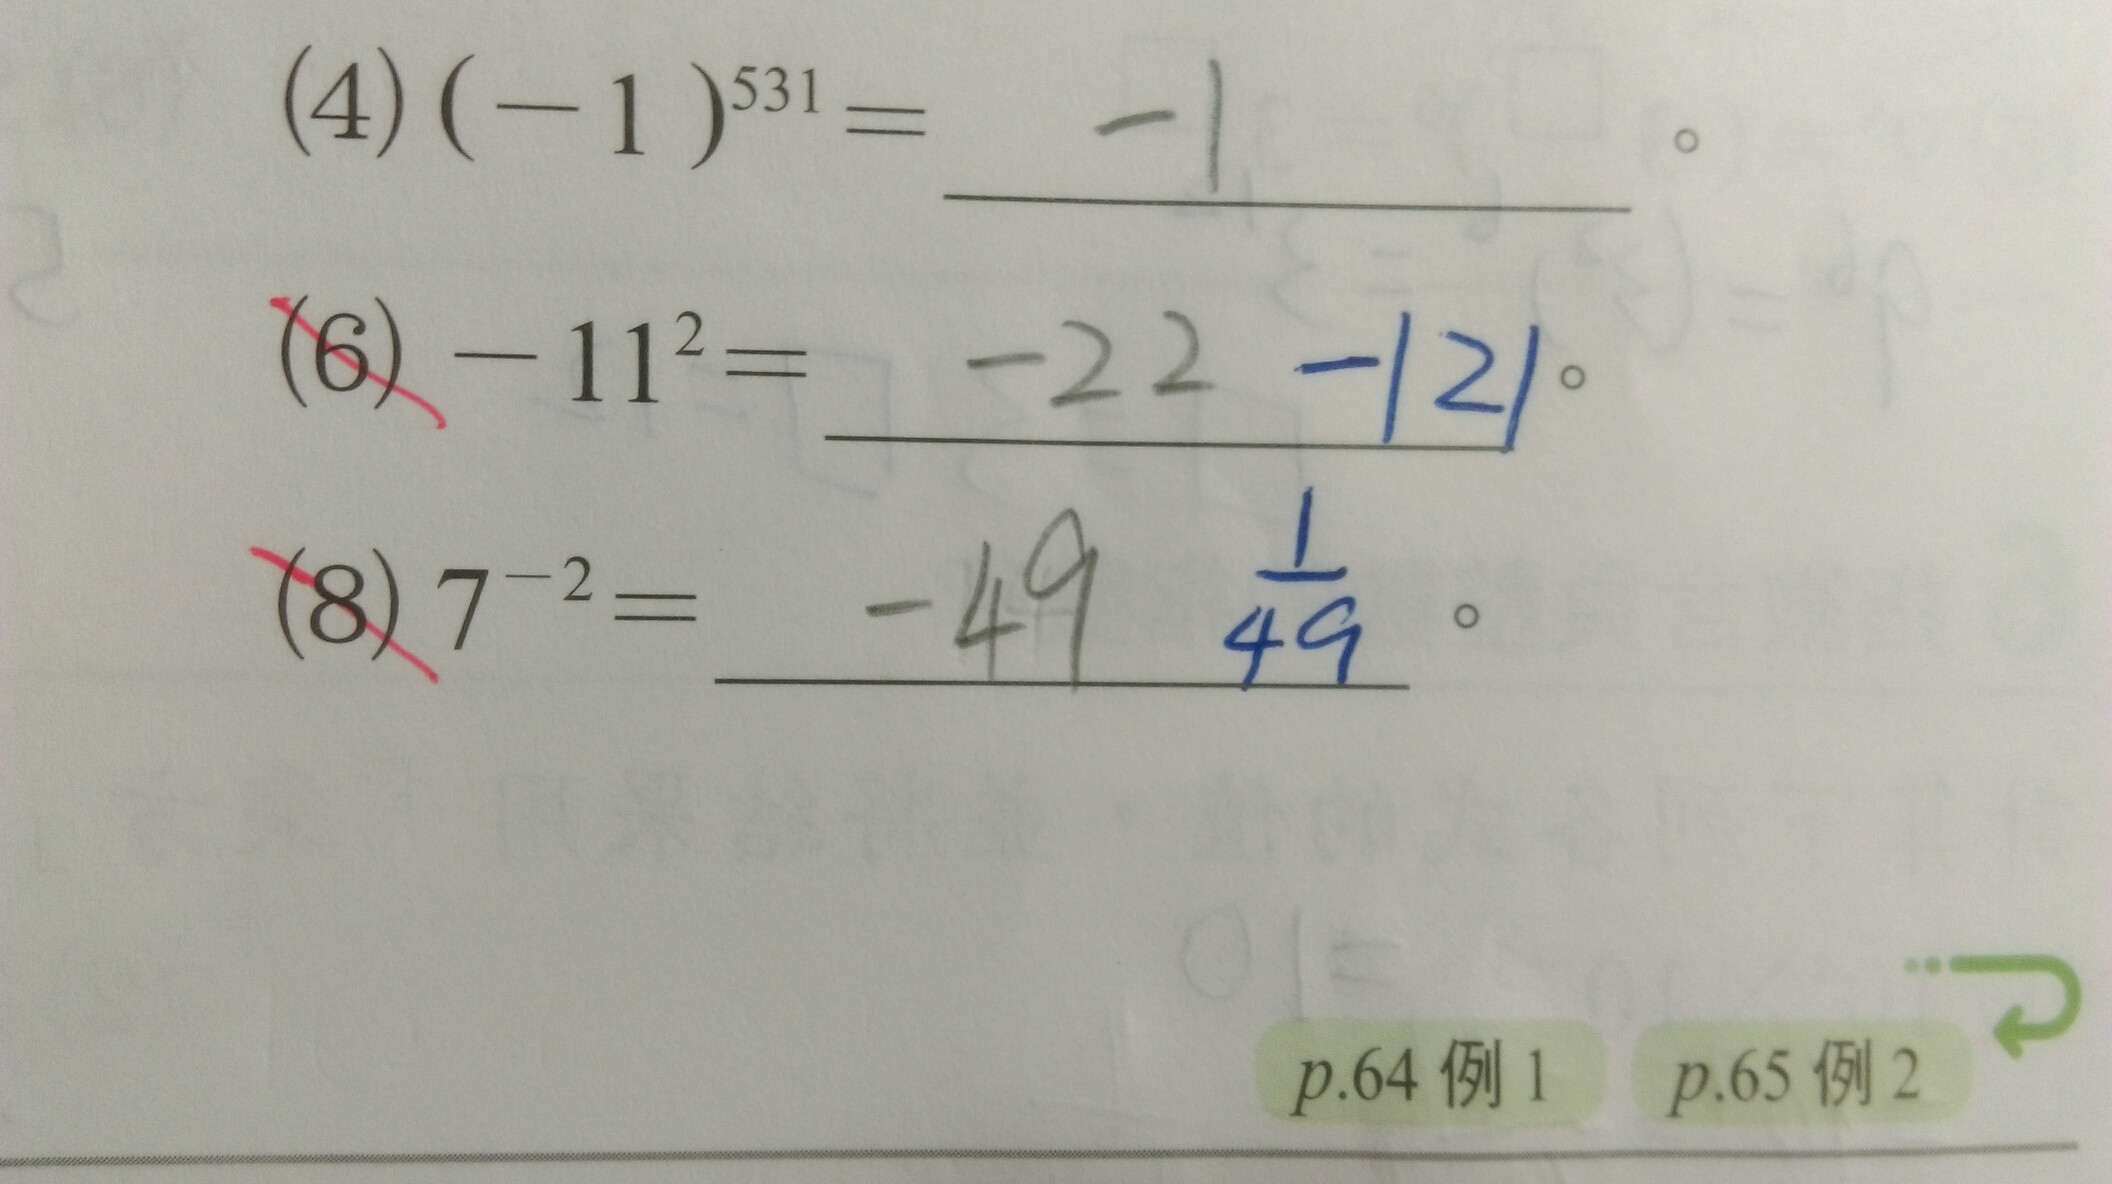 (4) (-1)^531 = -1 。
(6) -11² = -22 -121 。
(8) 7⁻² = -49 1/49 。
p.64 例 1 p.65 例 2